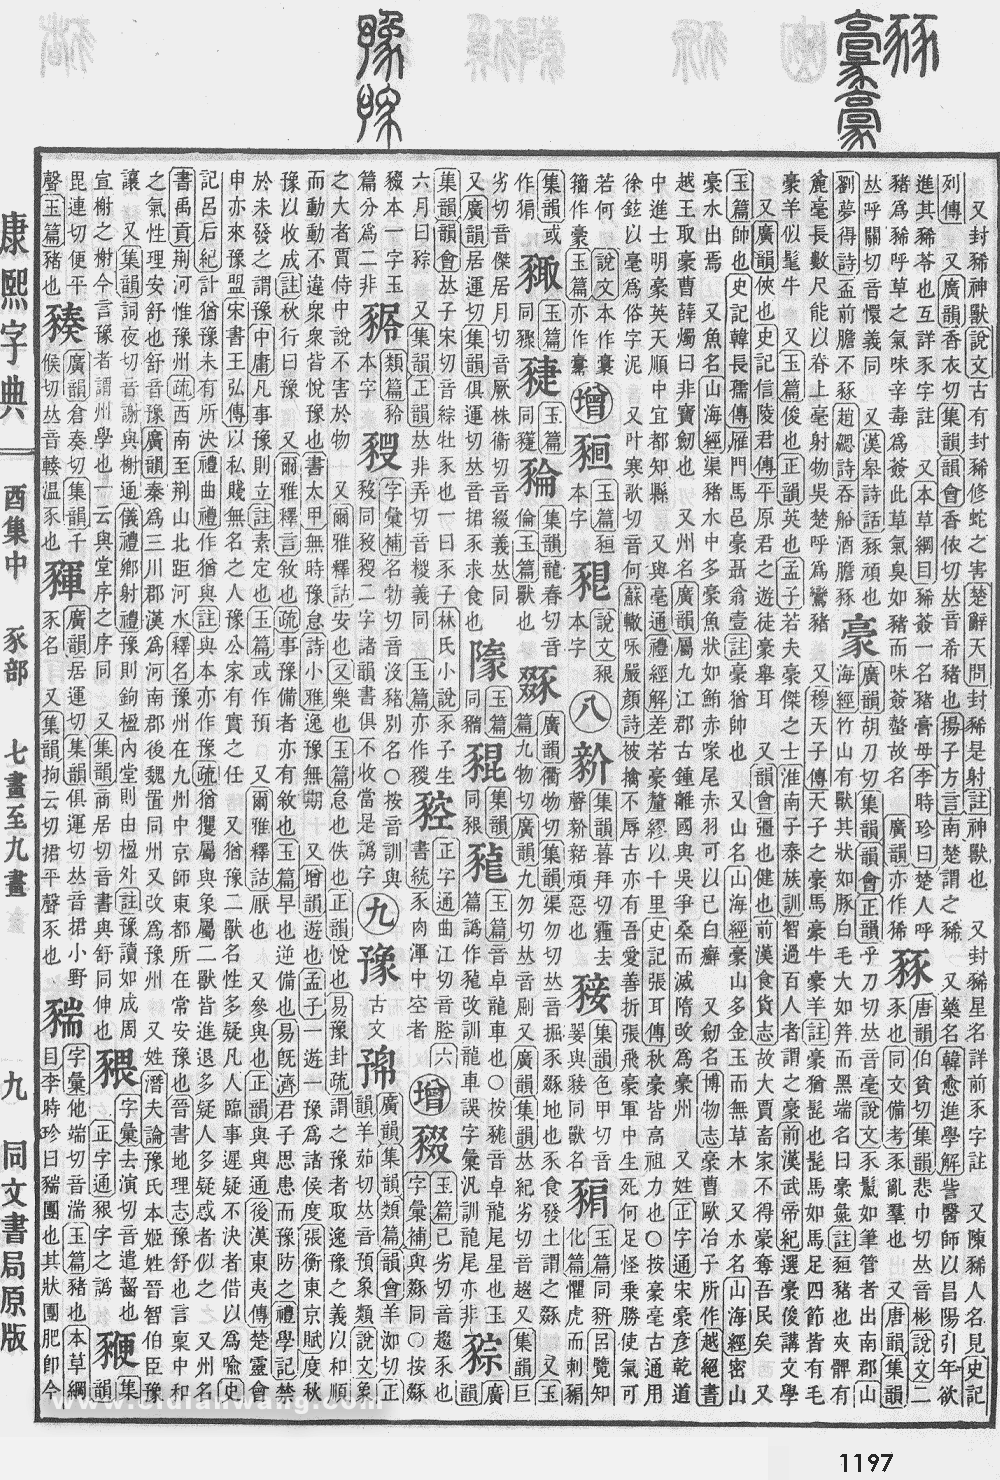 又封豨神獸說文古有封豨修蛇之害楚辭天問封豨是射註神獸也 又封豨星名詳前豕字註 又陳豨人名見史記
列傳 又廣韻香衣切集韻韻會香依切𠀤音希豬也揚子方言南楚謂之豨 又藥名韓愈進學解訾醫師以昌陽引年欲
進其豨苓也互詳豕字註 又本草綱目豨薟一名豬膏母李時珍曰楚人呼
豬爲豨呼草之氣味辛毒爲薟此草氣臭如豬而味薟螫故名 廣韻亦作狶
豩 唐韻伯貧切集韻悲巾切𠀤音彬說文二
豕也同文備考豕亂羣也 又唐韻集韻
𠀤呼關切音懁義同 又漢皐詩話豩頑也
劉夢得詩盃前膽不豩趙勰詩吞船酒膽豩
豪 廣韻胡刀切集韻韻會正韻乎刀切𠀤音毫說文豕鬣如筆管者出南郡山
海經竹山有獸其狀如豚白毛大如筓而黑端名曰豪彘註貆豬也夾髀有
麄毫長數尺能以脊上毫射物吳楚呼爲鸞豬 又穆天子傳天子之豪馬豪牛豪羊註豪猶髭也髭馬如馬足四節皆有毛
豪羊似髦牛 又玉篇俊也正韻英也孟子若夫豪傑之士淮南子泰族訓智過百人者謂之豪前漢武帝紀選豪俊講文學
又廣韻俠也史記信陵君傳平原君之遊徒豪舉耳 又韻會彊也健也前漢食貨志故大賈畜家不得豪奪吾民矣 又
玉篇帥也史記韓長孺傳雁門馬邑豪聶翁壹註豪猶帥也 又山名山海經豪山多金玉而無草木 又水名山海經密山
豪水出焉 又魚名山海經渠豬水中多豪魚狀如鮪赤喙尾赤羽可以已白癬 又劒名博物志豪曹歐冶子所作越絕書
越王取豪曹薛燭曰非寶劒也 又州名廣韻屬九江郡古鍾離國與吳爭桑而滅隋改爲豪州 又姓正字通宋豪彥乾道
中進士明豪英天順中宜都知縣 又與毫通禮經解差若豪釐繆以千里史記張耳傳秋豪皆高祖力也○按豪毫古通用
徐鉉以毫爲俗字泥 又叶寒歌切音何蘇轍咏嚴顏詩被擒不辱古亦有吾愛善折張飛豪軍中生死何足怪乘勝使氣可
若何 說文本作
籀作豪玉篇亦作
增
玉篇貆本字
說文豤本字
八
集韻暮拜切霾去聲
頑惡也
集韻色甲切音翣
同獸名
玉篇同豣呂覽知化篇懼虎而刺猏
集韻或作狷
玉篇同
玉篇同
倫玉篇獸也
集韻龍春切音
廣韻衢物切集韻渠勿切𠀤音掘豕豩地也豕食發土謂之豩 又玉篇九物切廣韻九勿切𠀤音劀 又廣韻集韻𠀤紀劣切音趉 又集韻巨
劣切音傑居月切音厥株衞切音綴義𠀤同
又廣韻居運切集韻俱運切𠀤音捃豕求食也
玉篇同豬
集韻同豤
玉篇音卓龍車也○按豵音卓龍尾星也玉篇譌作豵改訓龍車誤字彙汎訓龍尾亦非
豵 廣韻
集韻韻會𠀤子宋切音綜牡豕也一曰豕子林氏小說豕子生六月曰豵 又集韻正韻𠀤非弄切音㮨義同 玉篇亦作
正字通曲江切音腔六書統豕肉渾中空者
增
玉篇己劣切音趨豕也字彙補與豩同○按豩
豛本一字玉篇分爲二非
類篇豱本字
豛同豛豛二字諸韻書俱不收當是譌字
字彙補名勃切音沒豬別名○按音訓與
九
豫 古文
廣韻集韻類篇韻會羊洳切正韻羊茹切𠀤音預象類說文象
之大者賈侍中說不害於物 又爾雅釋詁安也又樂也玉篇怠也佚也正韻悅也易豫卦疏謂之豫者取逸豫之義以和順
而動動不違衆衆皆悅豫也書太甲無時豫怠詩小雅逸豫無期 又增韻遊也孟子一遊一豫爲諸侯度張衡東京賦度秋
豫以收成註秋行曰豫 又爾雅釋言敘也疏事豫備者亦有敘也玉篇早也逆備也易旣濟君子思患而豫防之禮學記禁
於未發之謂豫中庸凡事豫則立註素定也玉篇或作預 又爾雅釋詁厭也 又參與也正韻與與通後漢東夷傳楚靈會
申亦來豫盟宋書王弘傳以私賤無名之人豫公家有實之任 又猶豫二獸名性多疑凡人臨事遲疑不決者借以爲喩史
記呂后紀計猶豫未有所決禮曲禮作猶與註與本亦作豫疏猶玃屬與象屬二獸皆進退多疑人多疑惑者似之 又州名
書禹貢荆河惟豫州疏西南至荆山北距河水釋名豫州在九州中京師東都所在常安豫也晉書地理志豫舒也言稟中和
之氣性理安舒也舒音豫廣韻秦爲三川郡漢爲河南郡後魏置同州又改爲豫州 又姓潛夫論豫氏本姬姓晉智伯臣豫
讓 又集韻詞夜切音謝與榭通儀禮鄉射禮豫則鉤楹內堂則由楹外註豫讀如成周
宣榭之榭今言豫者謂州學也一云與堂序之序同 又集韻商居切音書與舒同伸也
豤 字彙去演切音遣齧也正字通豤字之譌
集韻
毘連切音便平聲玉篇豬也
豯
廣韻倉奏切集韻千候切𠀤音輳温豕也
豕名
廣韻居運切集韻俱運切𠀤音捃小野豕名 又集韻拘云切捃平聲豕也
猯 字彙他端切音湍玉篇豬也本草綱目李時珍曰猯團也其狀團肥卽今
康熙字典 酉集中 豕部 七畫至九畫 九 同文書局原版
1197